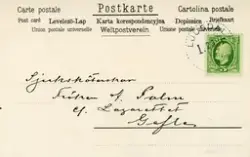 Carte postale Postkarte Cartolina postale
Post card Levelező-Lap Karta korespondencyjna Dopisnice Brefkort
Union postale universelle Weltpostverein Unione postale universale
Sjuksköterskan
Fröken A. Palm
c/o Lazarettet
Gefle